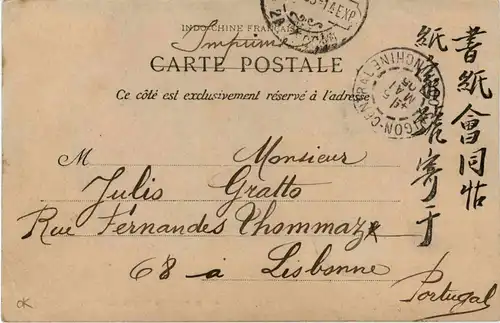 INDO-CHINE FRANÇAISE
Imprimé
CARTE POSTALE
Ce côté est exclusivement réservé à l'adresse
SAIGON-CENTRAL
M Monsieur
Julio Gratto
Rue Fernandes Thommaz
68 - à - Lisbonne
Portugal
書紙會同帖
紙寄于
OK